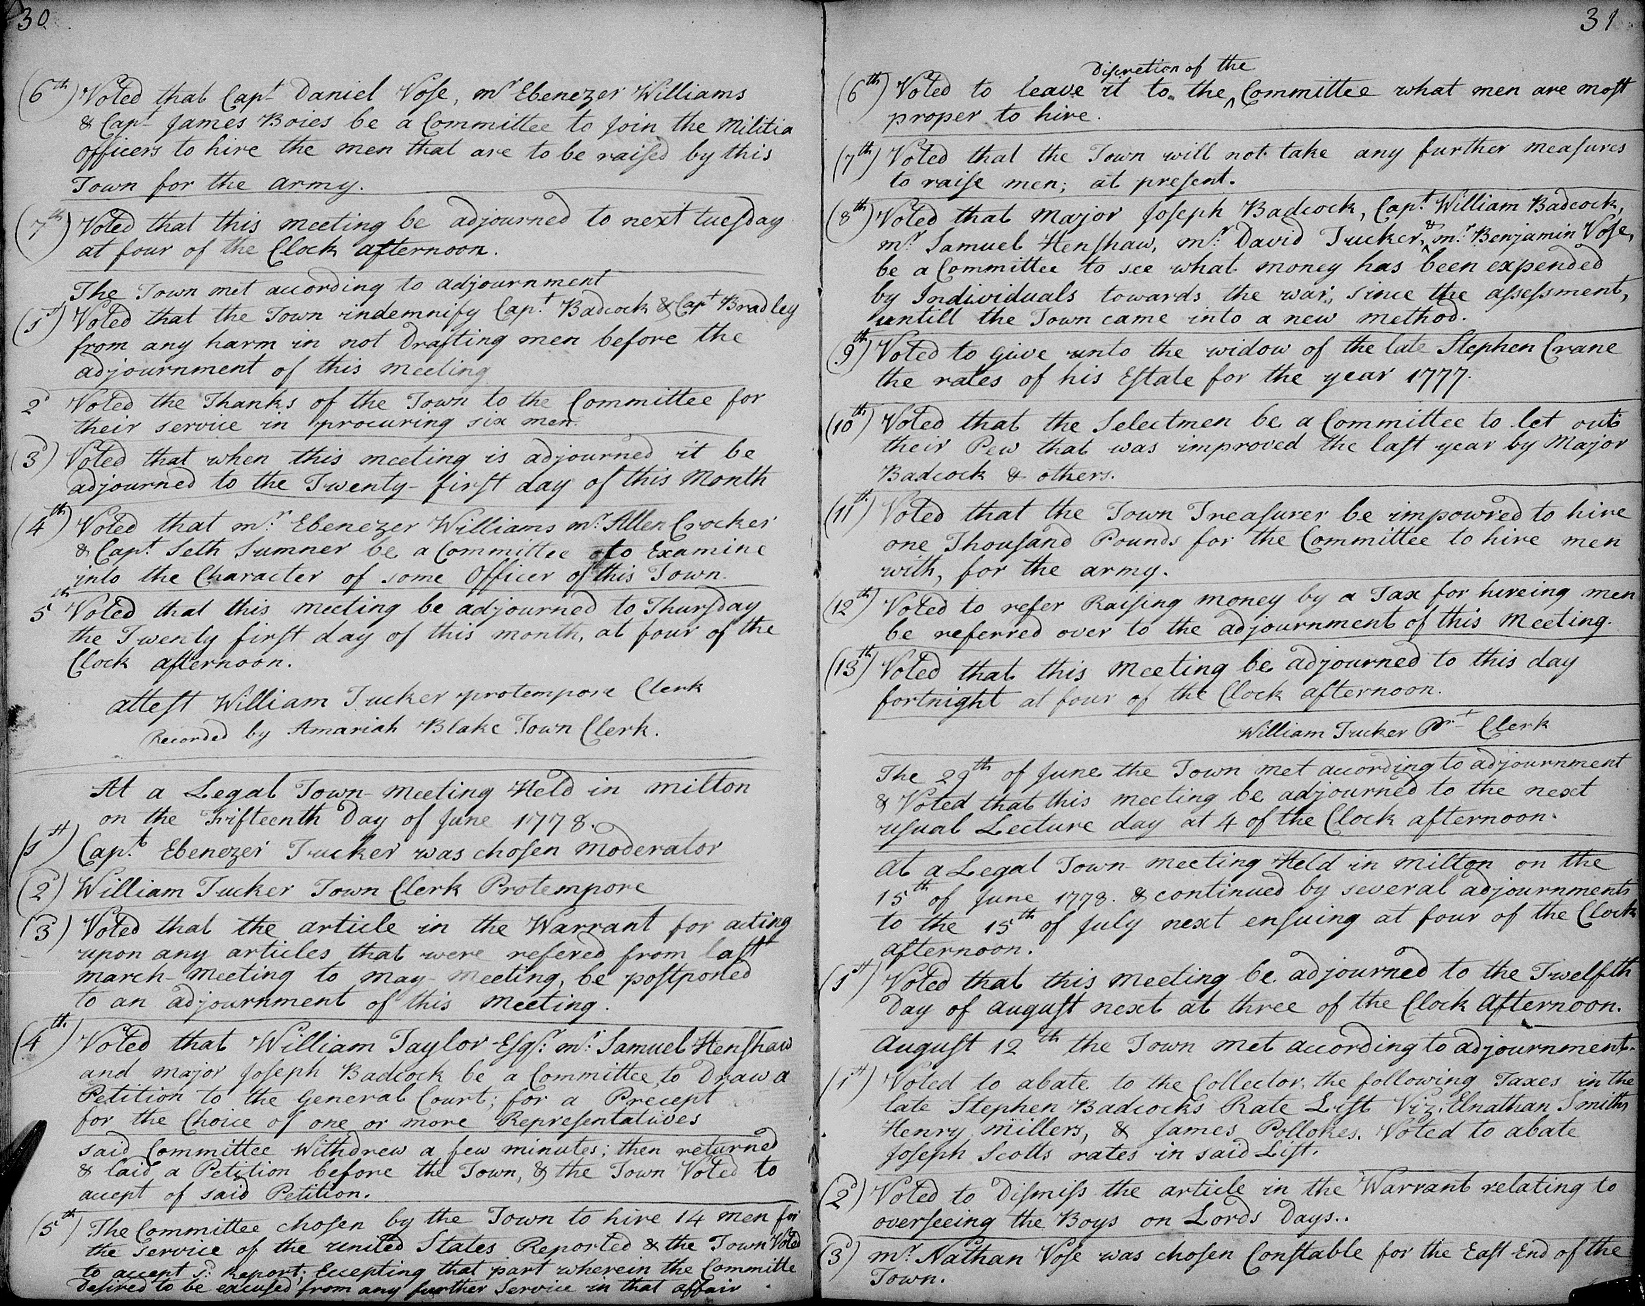 30
(6th) Voted that Capt Daniel Vose, mr Ebenezer Williams
& Capt James Boies be a Committee to Join the Militia
officers to hire the men that are to be raised by this
Town for the army.
(7th) Voted that this meeting be adjourned to next tuesday
at four of the Clock afternoon.
The Town met according to adjournment
(1st) Voted that the Town indemnify Capt. Badcock & Capt Bradley
from any harm in not Drafting men before the
adjournment of this meeting
2d Voted the Thanks of the Town to the Committee for
their service in procuring six men.
(3d) Voted that when this meeting is adjourned it be
adjourned to the Twenty-first day of this Month
(4th) Voted that mr. Ebenezer Williams mr. Allen Crocker
& Capt. Seth Sumner be a Committee to Examine
into the Character of some Officer of this Town.
5th Voted that this meeting be adjourned to Thursday
the Twenty first day of this month, at four of the
Clock afternoon.
attest William Tucker protempore Clerk
Recorded by Amariah Blake Town Clerk.
At a Legal Town-meeting Held in milton
on the Fifteenth Day of June 1778.
(1st) Capt. Ebenezer Tucker was chosen moderator
(2d) William Tucker Town Clerk Protempore
(3d) Voted that the article in the Warrant for acting
upon any articles that were refered from last
march-meeting to may-meeting, be postponed
to an adjournment of this meeting.
(4th) Voted that William Taylor Esqr. mr. Samuel Henshaw
and major Joseph Badcock be a Committee to Draw a
Petition to the General Court; for a Precept
for the Choice of one or more Representatives
said Committee Withdrew a few minutes; then returned
& laid a Petition before the Town, & the Town Voted to
accept of said Petition.
(5th) The Committee chosen by the Town to hire 14 men for
the service of the united States Reported & the Town Voted
to accept sd. Report; Excepting that part wherein the Committe
desired to be excused from any further Service in that affair
31
(6th) Voted to leave it to the ^ Discretion of the Committee what men are most
proper to hire.
(7th) Voted that the Town will not take any further measures
to raise men; at present.
(8th) Voted that Major Joseph Badcock, Capt. William Badcock,
mr. Samuel Henshaw, mr. David Tucker, & mr. Benjamin Vose,
be a Committee to see what money has been expended
by Individuals towards the war, since the assessment,
untill the Town came into a new method.
(9th) Voted to give unto the widow of the late Stephen Crane
the rates of his Estate for the year 1777.
(10th) Voted that the Selectmen be a Committee to let out
their Pew that was improved the last year by Major
Badcock & others.
(11th) Voted that the Town Treasurer be impowred to hire
one Thousand Pounds for the Committee to hire men
with, for the army.
(12th) Voted to refer Raising money by a Tax for hireing men
be referred over to the adjournment of this Meeting.
(13th) Voted that this Meeting be adjourned to this day
fortnight at four of the Clock afternoon.
William Tucker Pr.t Clerk
The 29th of June the Town met according to adjournment
& Voted that this meeting be adjourned to the next
usual Lecture day at 4 of the Clock afternoon.
At a Legal Town meeting Held in milton on the
15th of June 1778. & continued by several adjournments
to the 15th of July next ensuing at four of the Clock
afternoon.
(1st) Voted that this meeting be adjourned to the Twelfth
Day of august next at three of the Clock afternoon.
August 12th the Town met according to adjournment.
(1st) Voted to abate to the Collector, the following Taxes in the
late Stephen Badcocks Rate List Viz. Elnathan Smiths
Henry millers, & James Pollokes. Voted to abate
Joseph Scotts rates in said List.
(2d) Voted to Dismiss the article in the Warrant relating to
overseeing the Boys on Lords Days..
(3d) mr. Nathan Vose was chosen Constable for the East-End of the
Town.